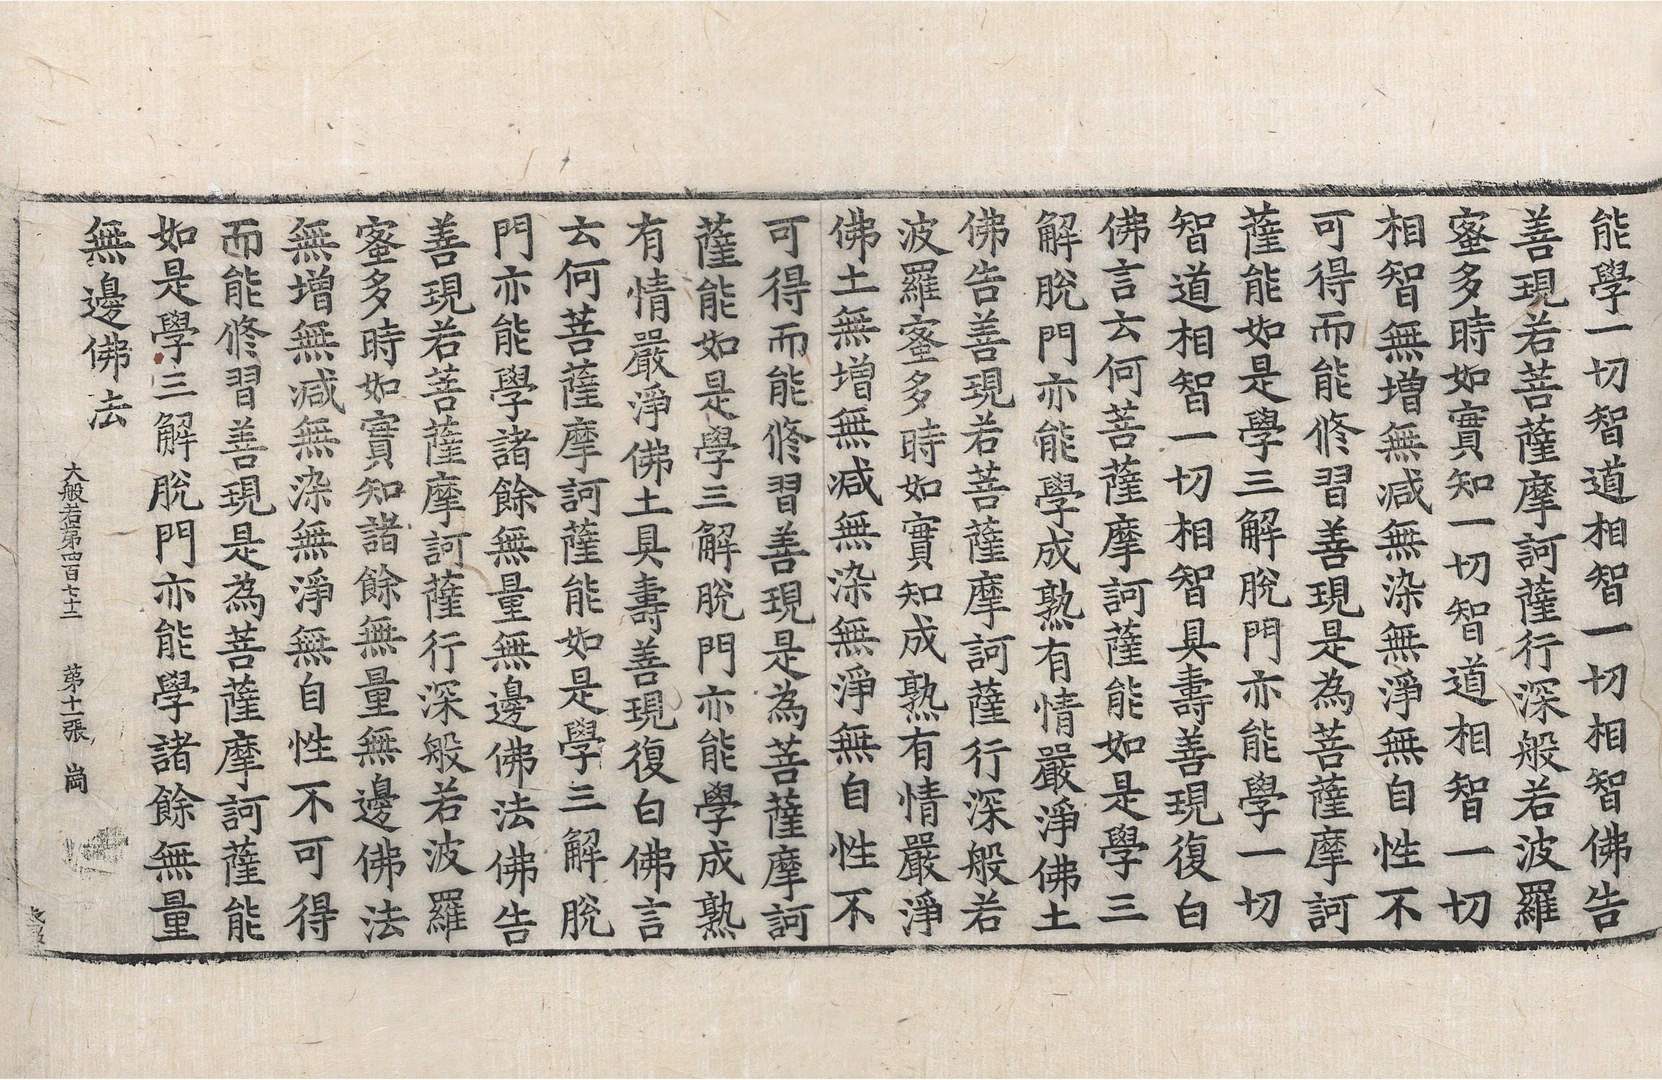 能學一切智道相智一切相智佛告
善現若菩薩摩訶薩行深般若波羅
蜜多時如實知一切智道相智一切
相智無增無減無染無淨無自性不
可得而能修習善現是為菩薩摩訶
薩能如是學三解脫門亦能學一切
智道相智一切相智具壽善現復白
佛言云何菩薩摩訶薩能如是學三
解脫門亦能學成熟有情嚴淨佛土
佛告善現若菩薩摩訶薩行深般若
波羅蜜多時如實知成熟有情嚴淨
佛土無增無減無染無淨無自性不
可得而能修習善現是為菩薩摩訶
薩能如是學三解脫門亦能學成熟
有情嚴淨佛土具壽善現復白佛言
云何菩薩摩訶薩能如是學三解脫
門亦能學諸餘無量無邊佛法佛告
善現若菩薩摩訶薩行深般若波羅
蜜多時如實知諸餘無量無邊佛法
無增無減無染無淨無自性不可得
而能修習善現是為菩薩摩訶薩能
如是學三解脫門亦能學諸餘無量
無邊佛法
大般若第四百七十二 第十一張 崗